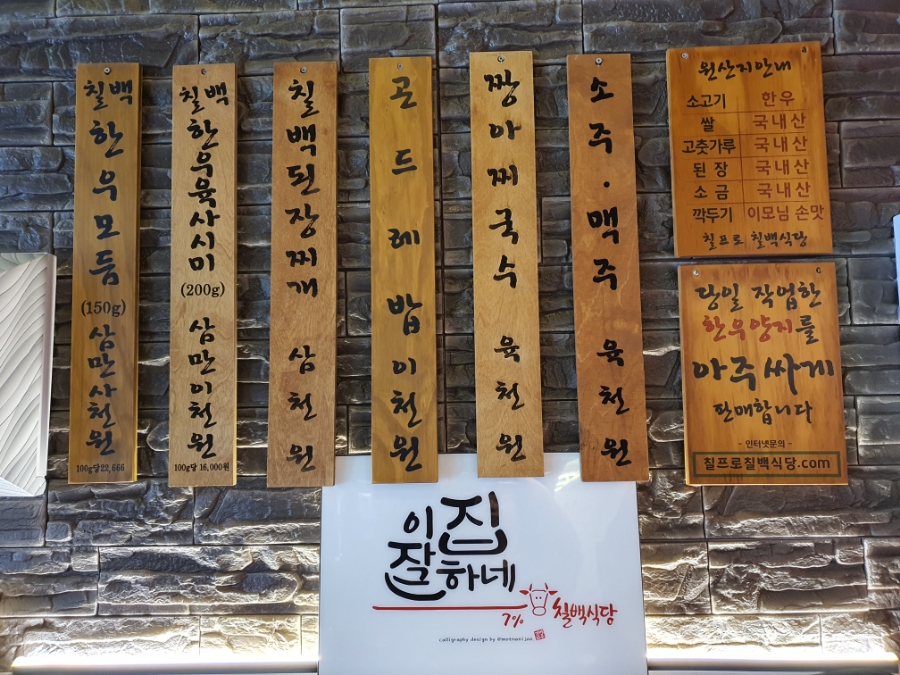 칠백
한우모듬
(150g)
삼만사천원
100g당22,666
칠백
한우육사시미
(200g)
삼만이천원
100g당 16,000원
칠백된장찌개
삼천원
곤드레밥이천원
짱아찌국수
육천원
소주·맥주
육천원
원산지안내
소고기 한우
쌀 국내산
고춧가루 국내산
된장 국내산
소금 국내산
깍두기 이모님 손맛
칠프로 칠백식당
당일 작업한
한우양지를
아주싸게
판매합니다
- 인터넷문의 -
칠프로칠백식당.com
이집
잘하네
7% 칠백식당